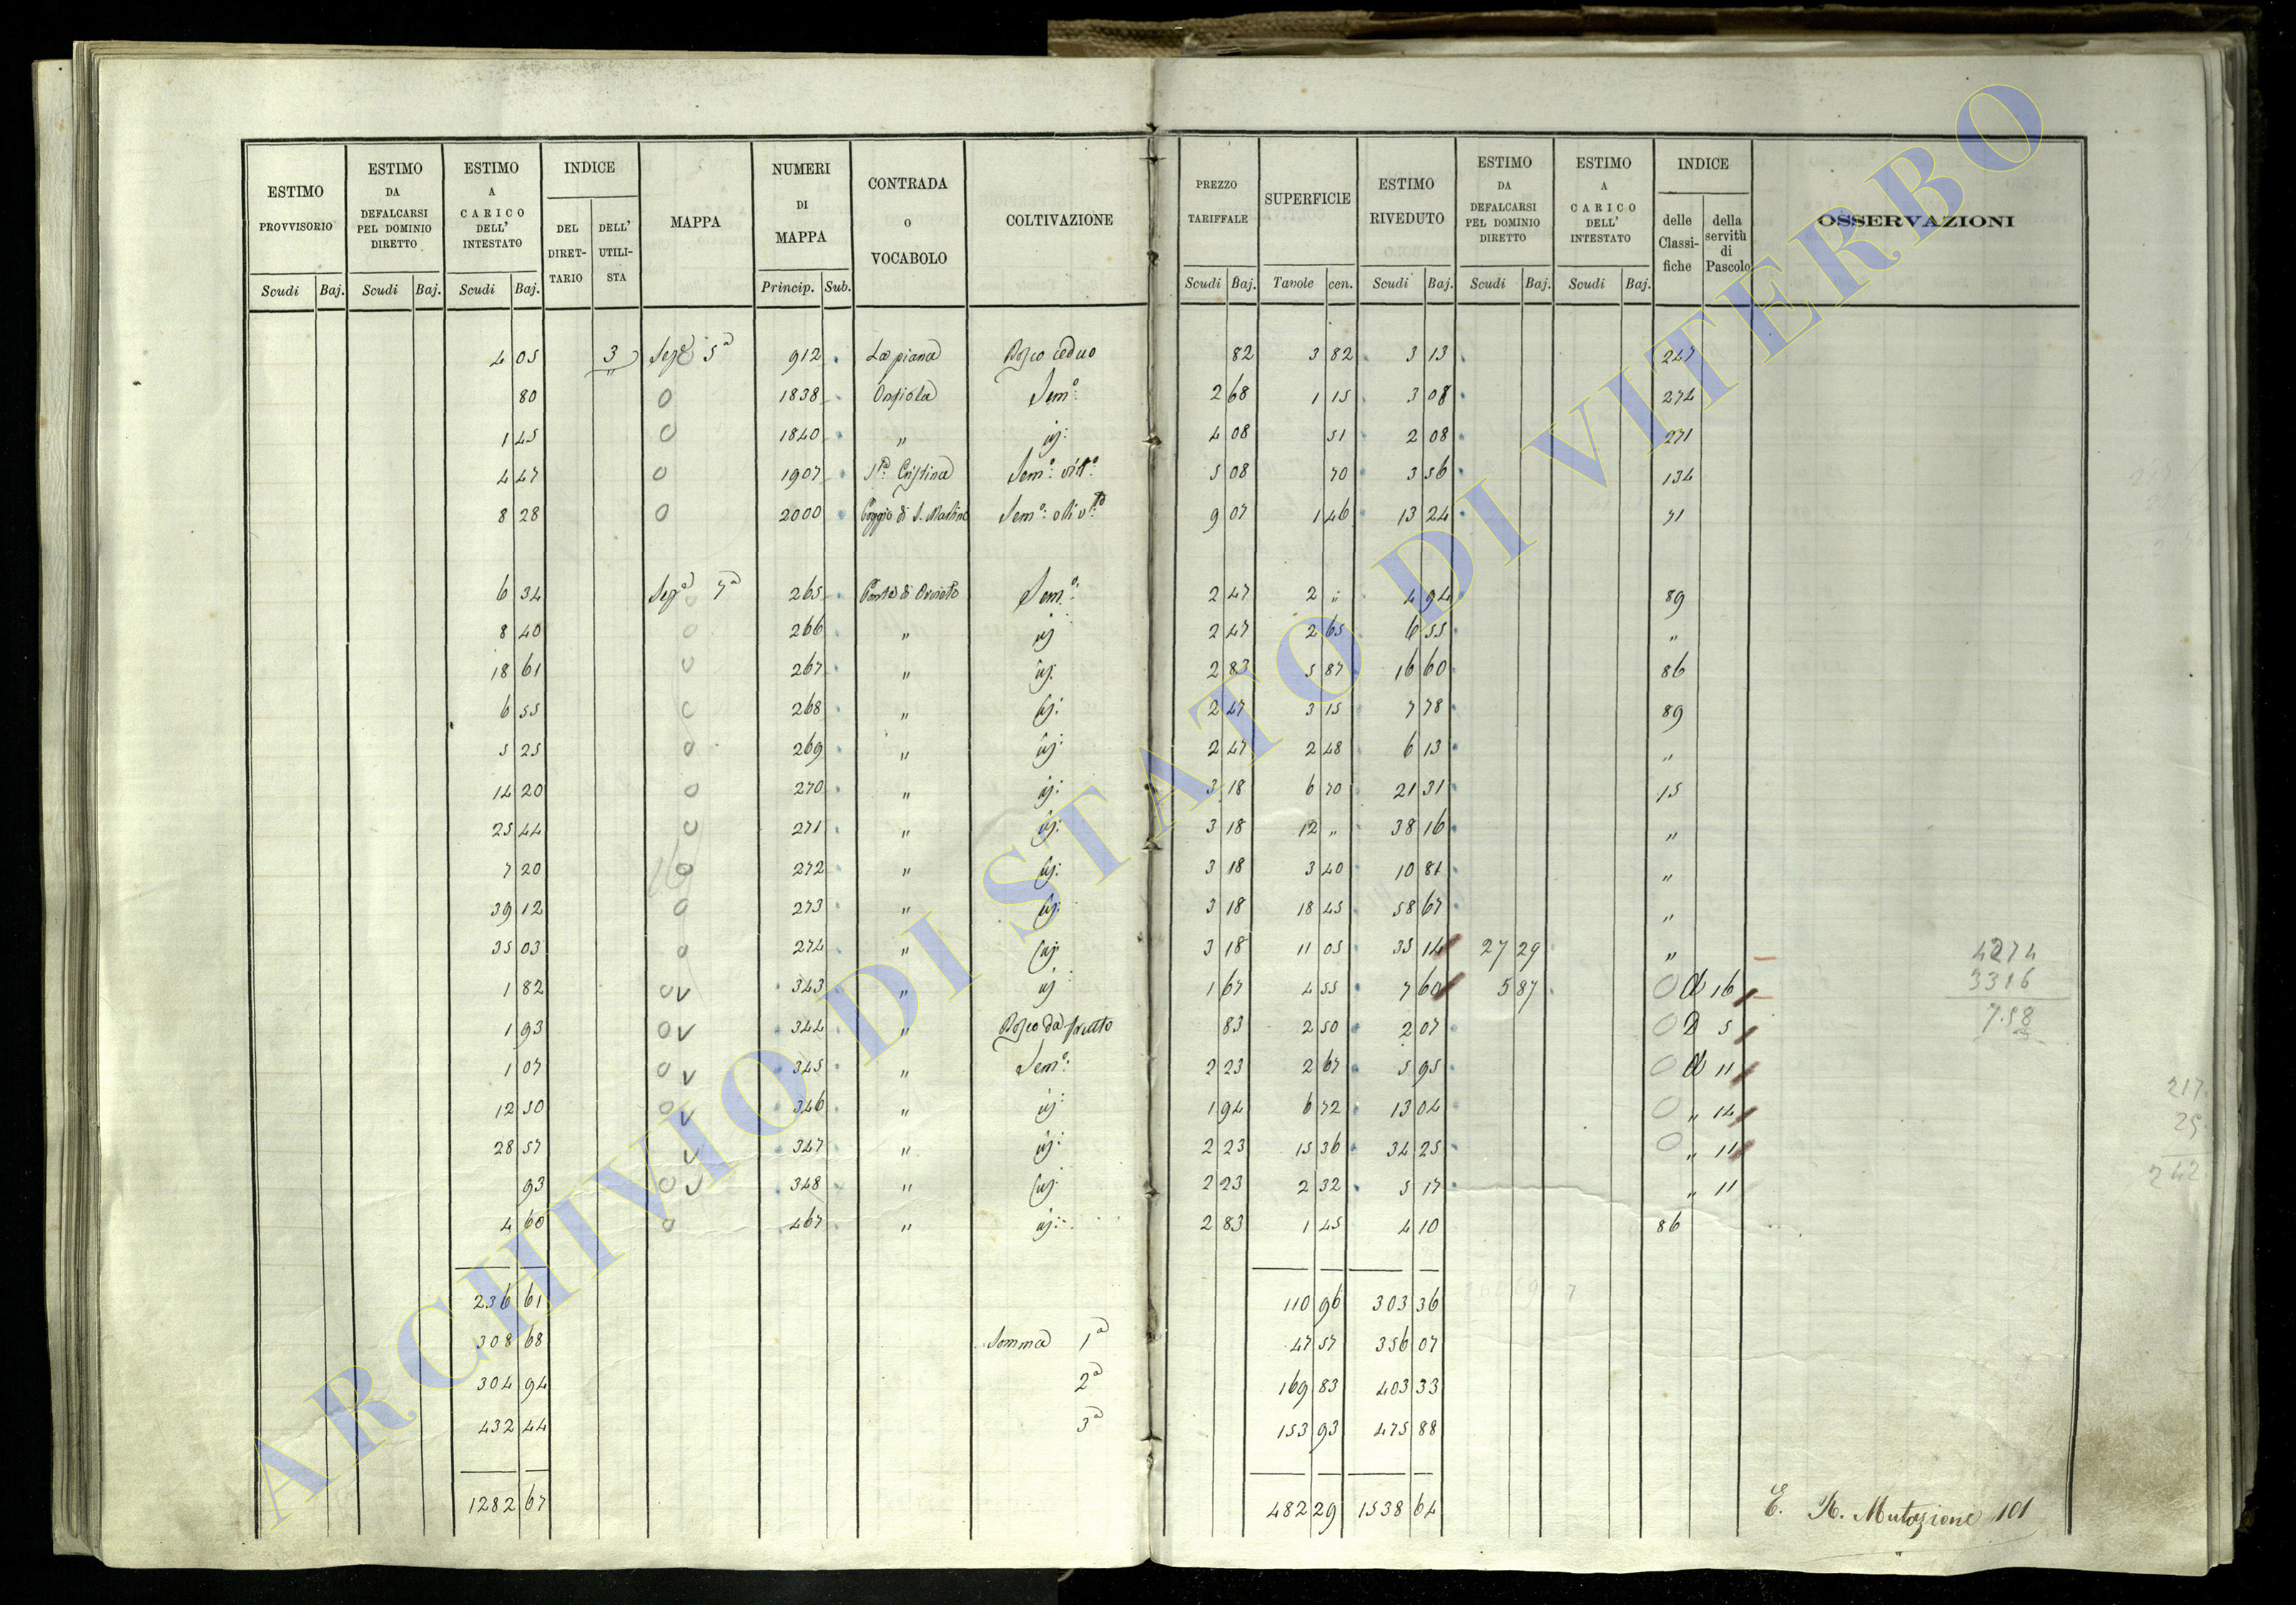 ESTIMO PROVVISORIO | ESTIMO DA DEFALCARSI PEL DOMINIO DIRETTO | ESTIMO A CARICO DELL' INTESTATO | INDICE DEL DIRETTARIO | DELL' UTILISTA | MAPPA | NUMERI DI MAPPA | CONTRADA o VOCABOLO | COLTIVAZIONE | PREZZO TARIFFALE | SUPERFICIE | ESTIMO RIVEDUTO | ESTIMO DA DEFALCARSI PEL DOMINIO DIRETTO | ESTIMO A CARICO DELL' INTESTATO | INDICE delle Classifiche | della servitù di Pascolo | OSSERVAZIONI
Scudi Baj. Scudi Baj. Scudi Baj. Princip. Sub. Scudi Baj. Tavole cen. Scudi Baj. Scudi Baj. Scudi Baj.
4 05 3 Sezᵉ 5ᵃ 912 La piana Bosco ceduo 82 3 82 3 13 247
80 0 1838 Semᵒ: 2 68 1 15 3 08 274
1 45 0 1840 " iđ: 4 08 51 2 08 271
4 47 0 1907 Sᵗᵃ Cristina Semᵒ: vitᵒ: 5 08 70 3 56 134
8 28 0 2000 Poggio di S. Martino Semᵒ: olivᵗᵒ 9 07 1 46 13 24 71
6 34 Sezᵉ 7ᵃ 265 Semᵒ: 2 47 2 " 4 94 89
8 40 0 266 " iđ 2 47 2 65 6 55 "
18 61 0 267 " iđ: 2 83 5 87 16 60 86
6 55 0 268 " iđ: 2 47 3 15 7 78 89
5 25 0 269 " iđ: 2 47 2 48 6 13 "
14 20 0 270 " iđ: 3 18 6 70 21 31 15
25 44 0 271 " iđ: 3 18 12 " 38 16 "
7 20 0 272 " iđ: 3 18 3 40 10 81 "
39 12 0 273 " iđ: 3 18 18 45 58 67 "
35 03 0 274 " iđ: 3 18 11 05 35 14 27 29 " 4274
1 82 0 v 343 " iđ 1 67 4 55 7 60 5 87 0 16 3316
1 93 0 v 344 " Bosco da frutto 83 2 50 2 07 0 2 5 7.58
1 07 0 v 345 " Semᵒ: 2 23 2 67 5 95 0 11
12 50 0 v 346 " iđ: 1 94 6 72 13 04 0 " 14 217
28 57 v 347 " iđ: 2 23 15 36 34 25 0 " 11 25
93 0 v 348 " iđ: 2 23 2 32 5 17 " 11 242
4 60 0 467 " iđ: 2 83 1 45 4 10 86
236 61 110 96 303 36
308 68 Somma 1ᵃ 47 57 356 07
304 94 2ᵃ 169 83 403 33
432 44 3ᵃ 153 93 475 88
1282 67 482 29 1538 64 E. R. Mutazione 101
ARCHIVIO DI STATO DI VITERBO